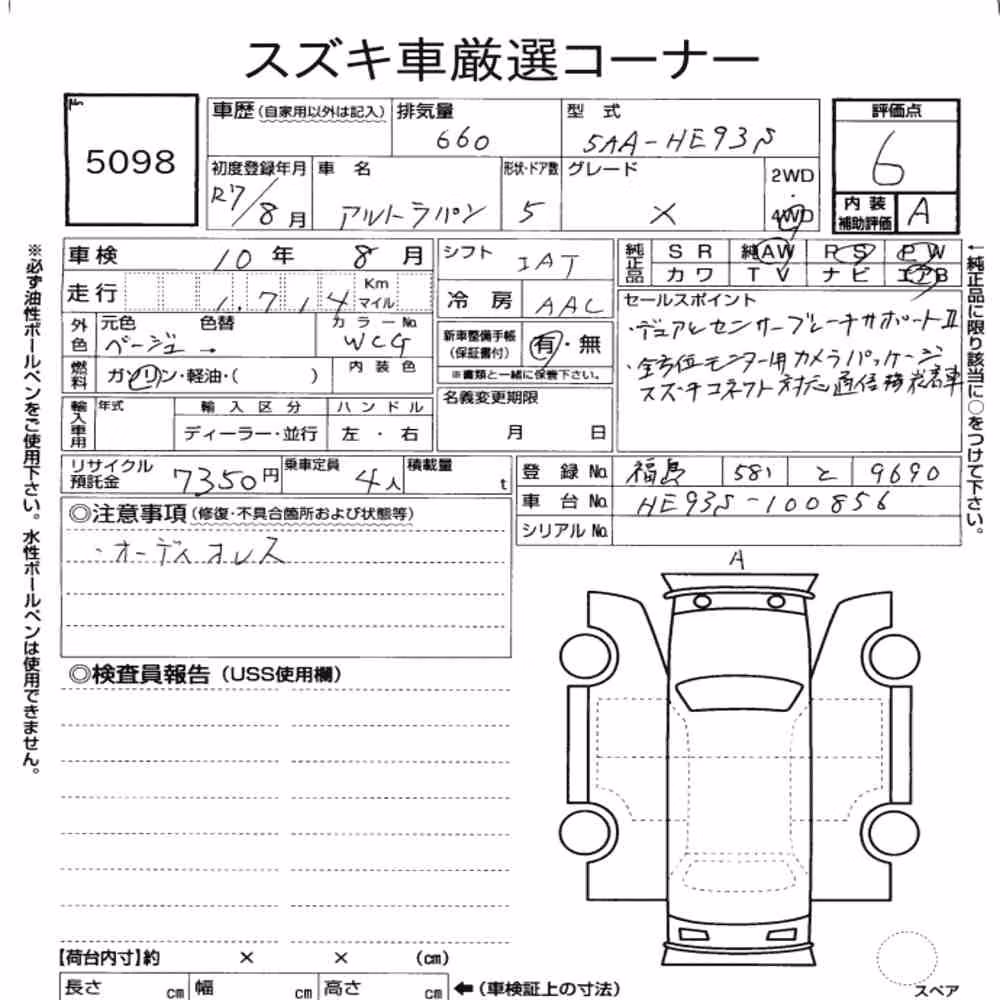 スズキ車厳選コーナー
No.
5098
車歴（自家用以外は記入）
排気量
660
型 式
5AA-HE93S
評価点
6
初度登録年月
R7/8月
車 名
アルトラパン
形状・ドア数
5
グレード
X
2WD
・
4WD
内 装
補助評価
A
車検
10年 8月
シフト
IAT
純正品
SR 純AW PS PW
カワ TV ナビ エアB
走行
1,714
Km
マイル
冷 房
AAC
セールスポイント
・デュアルセンサーブレーキサポートⅡ
・全方位モニター用カメラパッケージ
スズキコネクト対応通信機装着車
外色
元色
ベージュ →
色替
カラーNo.
WCG
新車整備手帳
（保証書付）
有・無
※書類と一緒に保管下さい。
燃料
ガソリン・軽油・（ ）
内装色
名義変更期限
月 日
輸入車用
年式
輸入区分
ディーラー・並行
ハンドル
左 ・ 右
リサイクル
預託金
7350円
乗車定員
4人
積載量
t
登 録 No.
福島 581 と 9690
車 台 No.
HE93S-100856
シリアル No.
◎注意事項（修復・不具合箇所および状態等）
・オーディオレス
A
◎検査員報告（USS使用欄）
【荷台内寸】約 × × （cm）
長さ cm
幅 cm
高さ cm
←（車検証上の寸法）
スペア
※必ず油性ボールペンをご使用下さい。水性ボールペンは使用できません。
←純正品に限り該当に○をつけて下さい。